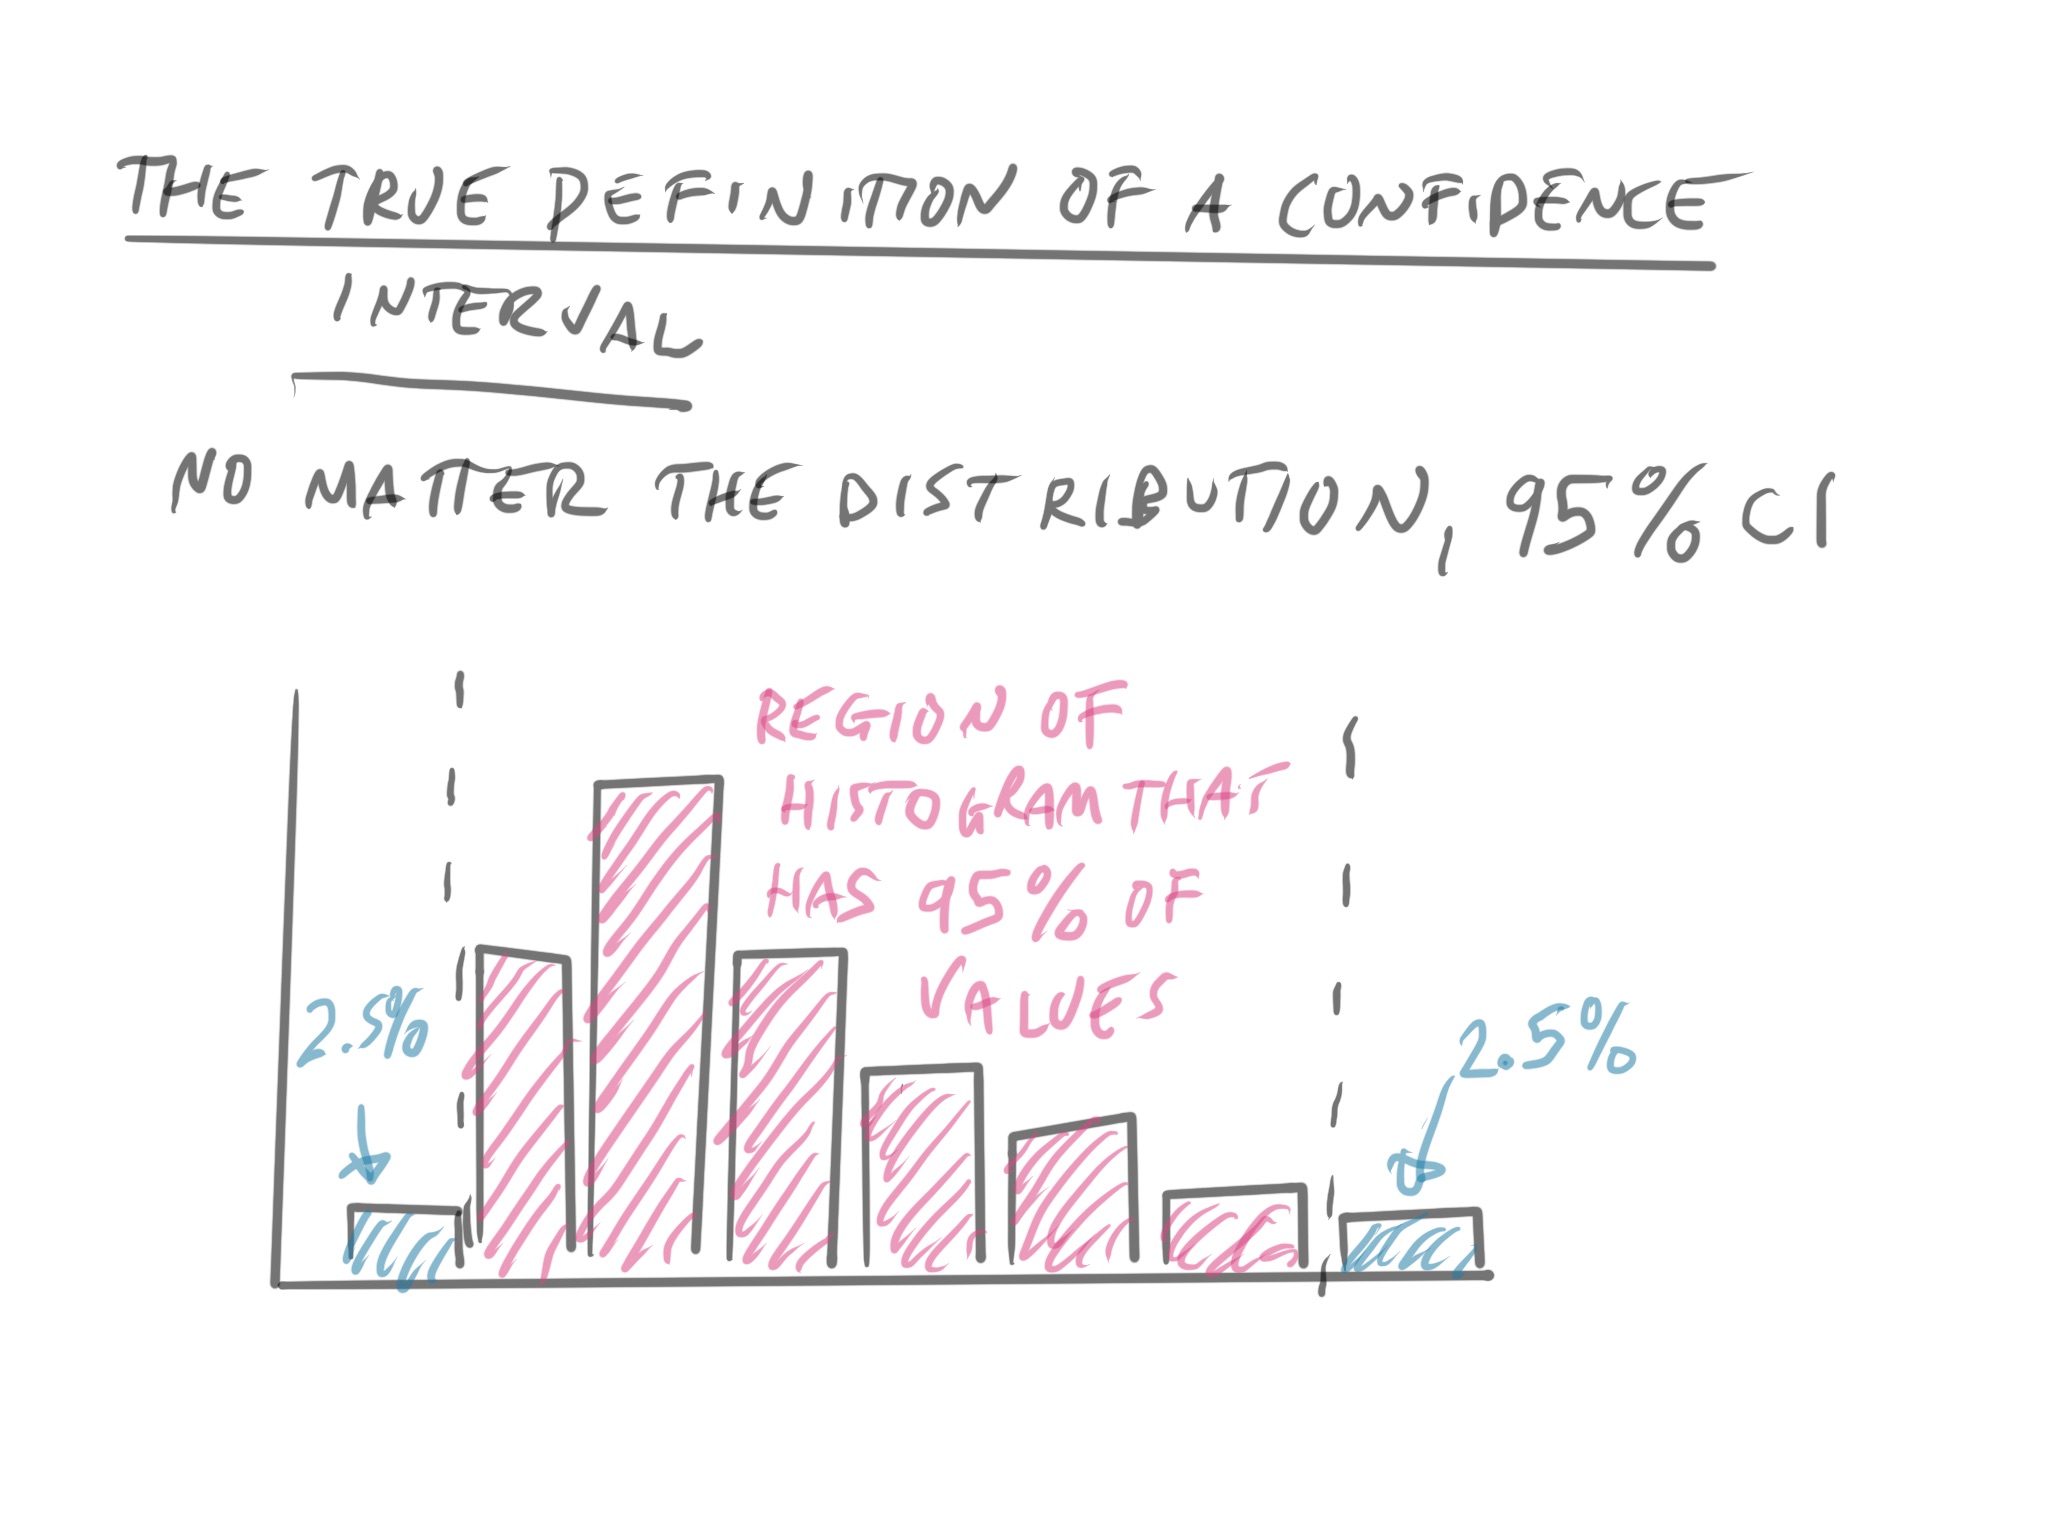 THE TRUE DEFINITION OF A CONFIDENCE
INTERVAL
NO MATTER THE DISTRIBUTION, 95% CI
REGION OF
HISTOGRAM THAT
HAS 95% OF
VALUES
2.5%
2.5%